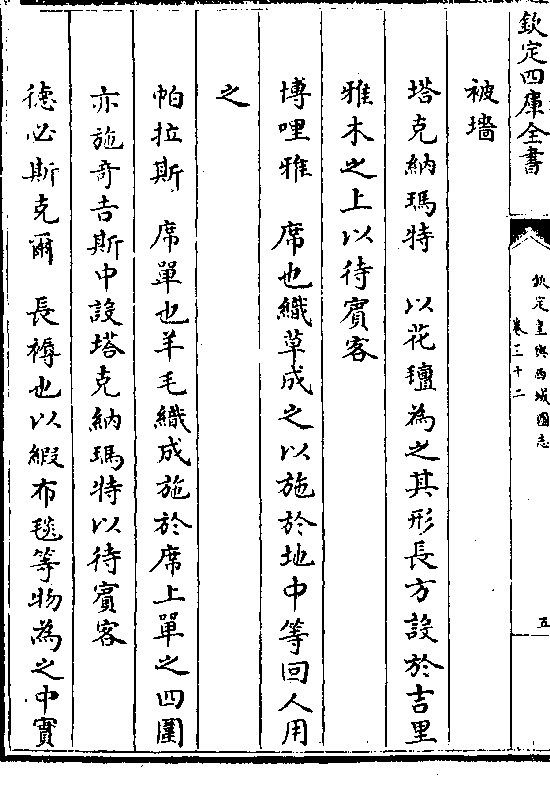 欽定四庫全書
欽定皇輿西域圖志
卷三十二
五
被墻
塔克納瑪特　以花氊為之其形長方設於吉里
雅木之上以待賓客
博哩雅　席也織草成之以施於地中等回人用
之
帕拉斯　席單也羊毛織成施於席上單之四圍
亦施奇吉斯中設塔克納瑪特以待賓客
德必斯克爾　長褥也以緞布毯等物為之中實